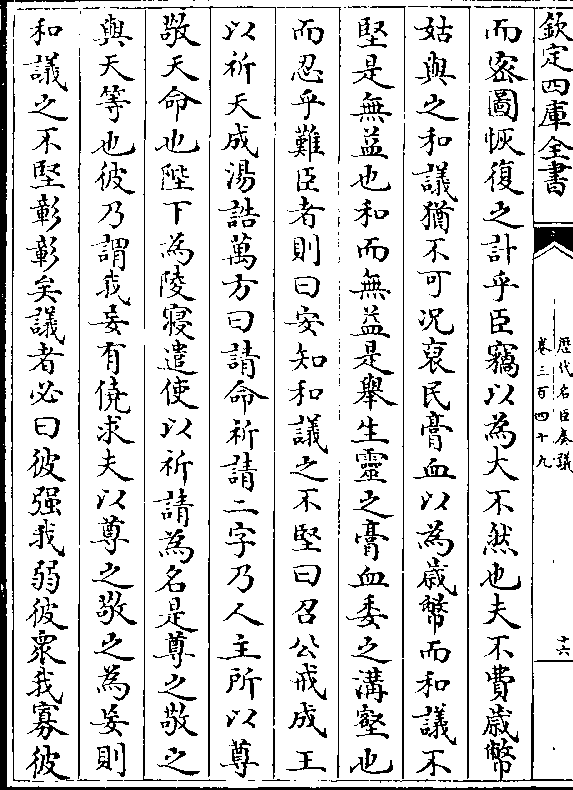 欽定四庫全書
歴代名臣奏議
卷三百四十九
十六
而密圖恢復之計乎臣竊以為大不然也夫不費歲幣
姑與之和議猶不可况裒民膏血以為歲幣而和議不
堅是無益也和而無益是舉生靈之膏血委之溝壑也
而忍乎難臣者則曰安知和議之不堅曰召公戒成王
以祈天成湯誥萬方曰請命祈請二字乃人主所以尊
敬天命也陛下為陵寢遣使以祈請為名是尊之敬之
與天等也彼乃謂我妄有僥求夫以尊之敬之為妄則
和議之不堅彰彰矣議者必曰彼强我弱彼衆我寡彼